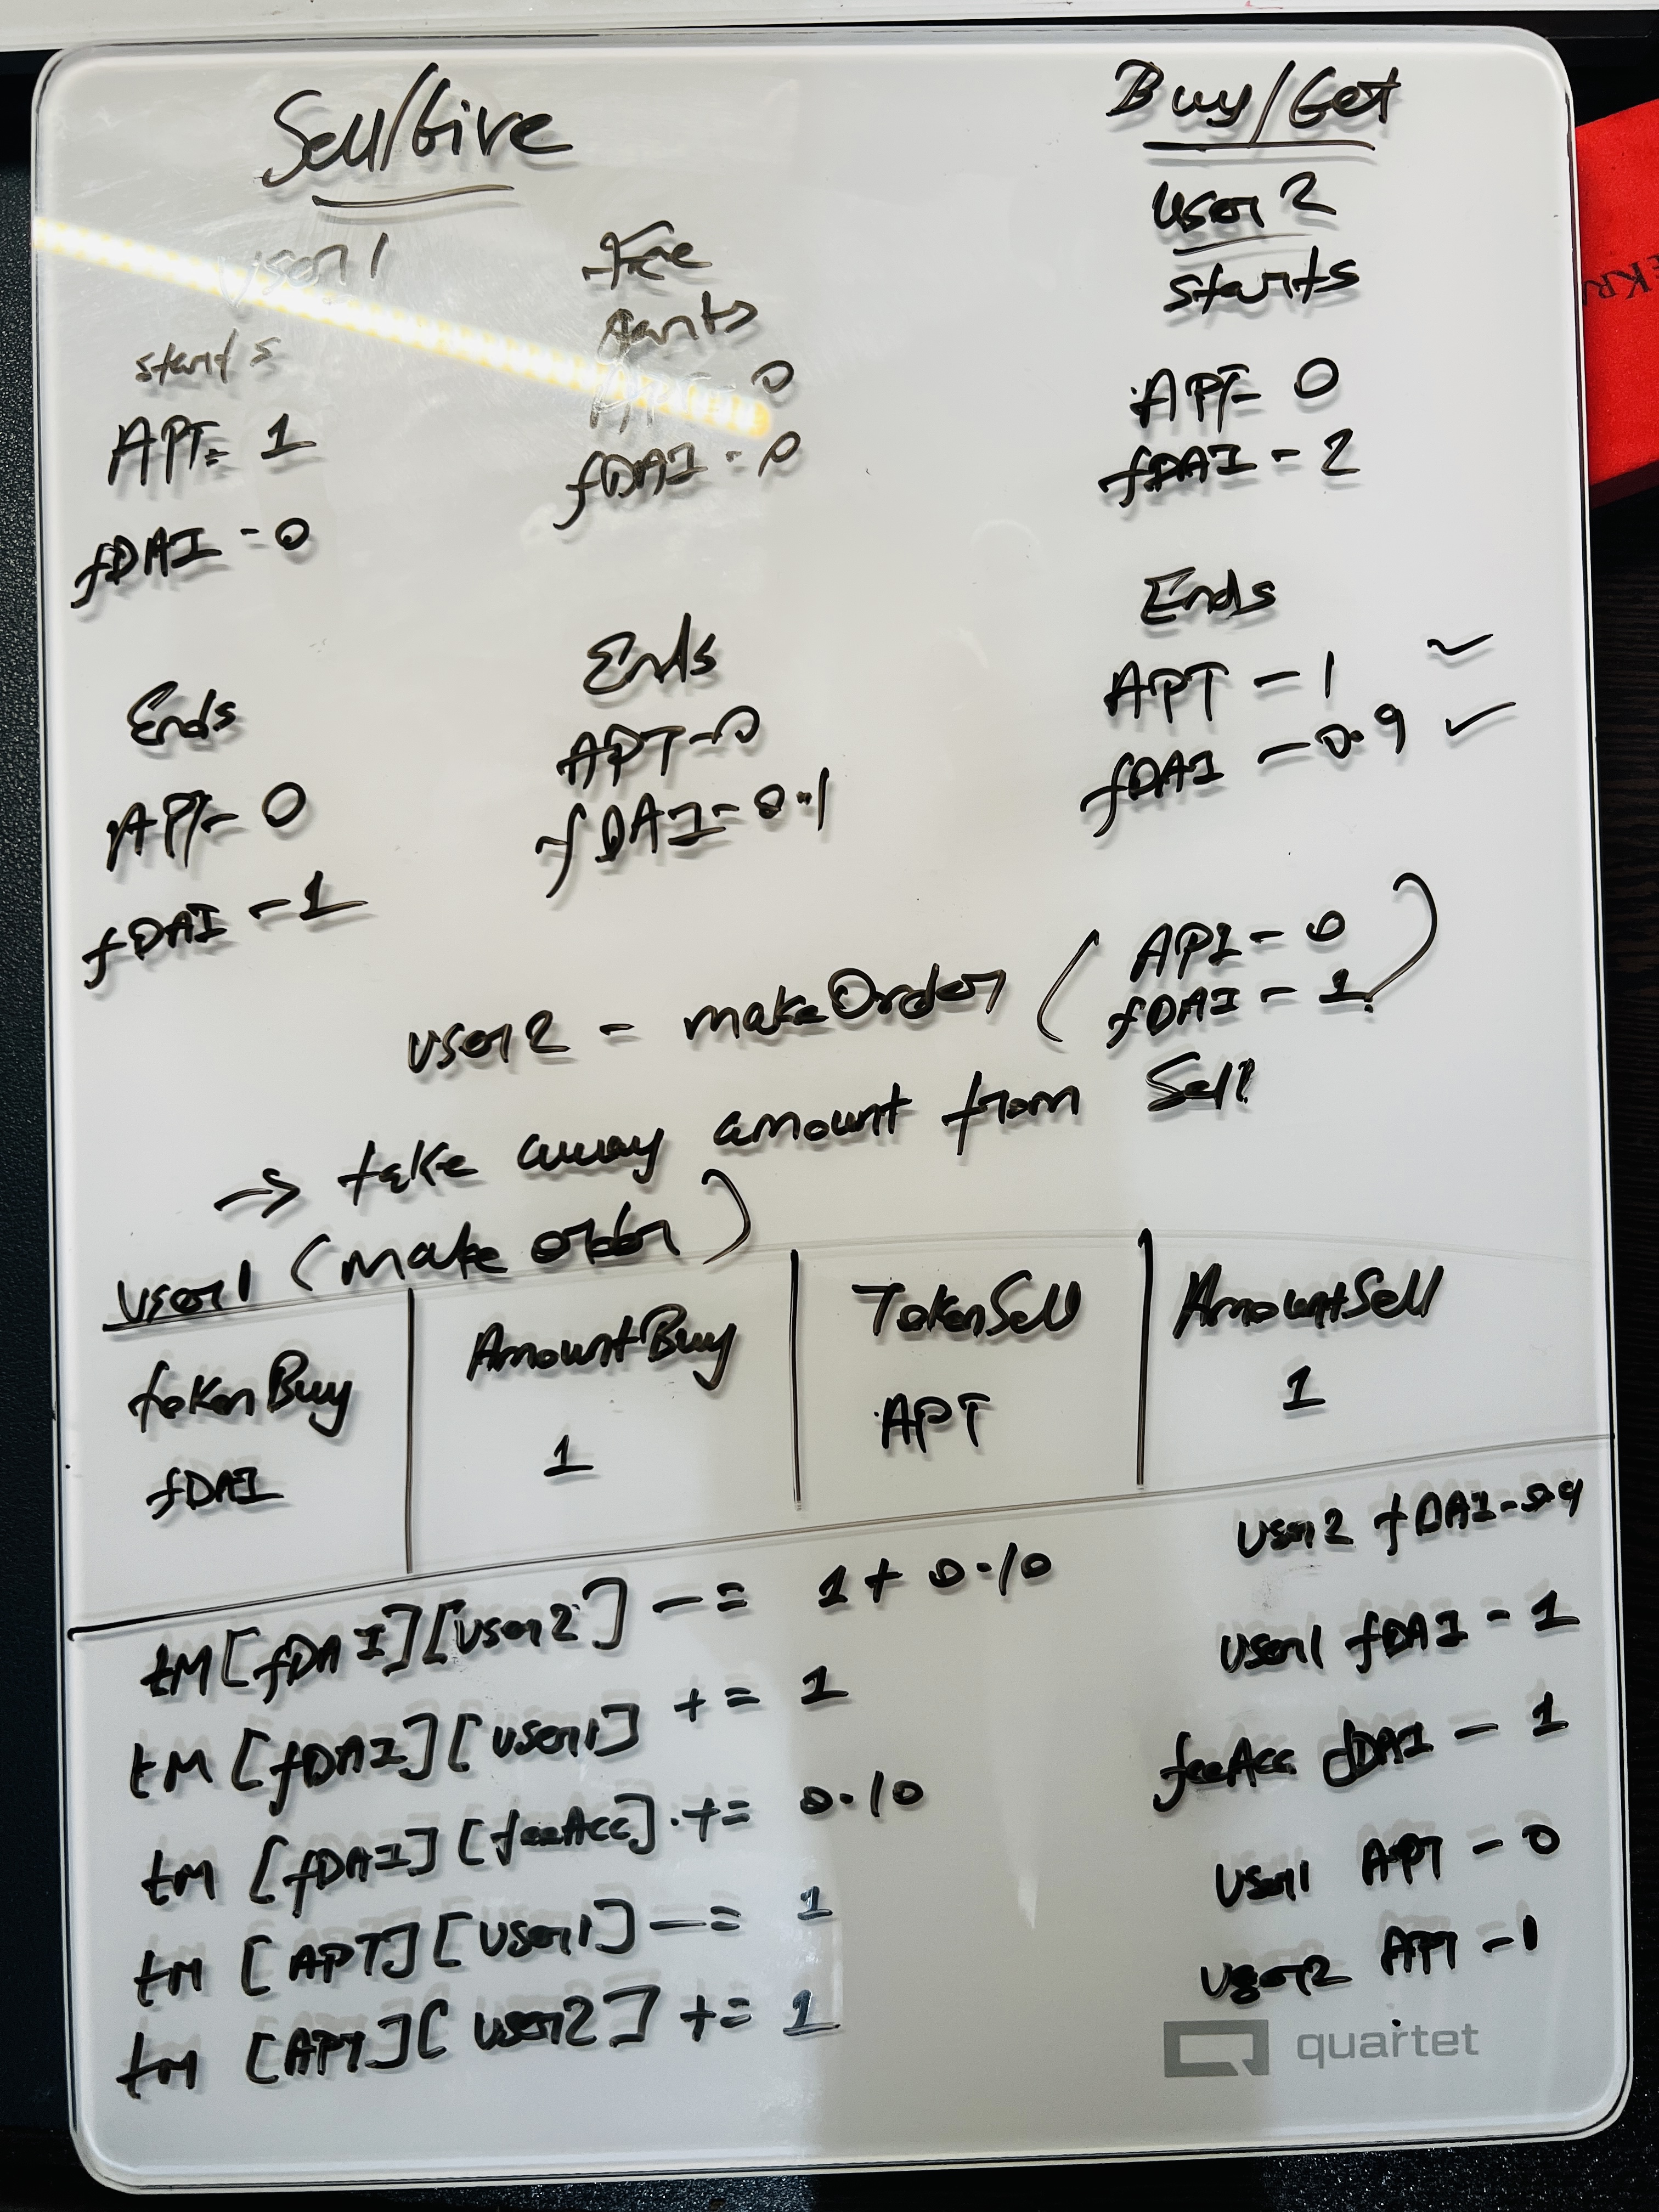 Sell/Give
Buy/Get
user1
fee
user2
starts
starts
starts
APT = 1
fDAI - 0
0
fDAI - 0
APT - 0
fDAI - 2
Ends
APT - 0
fDAI - 1
Ends
APT - 0
fDAI - 0.1
Ends
APT - 1 ✓
fDAI - 0.9 ✓
user2 - makeOrder ( APT - 0
fDAI - 1 )
→ take away amount from Sell
user1 (make order)
tokenBuy | AmountBuy | TokenSell | AmountSell
fDAI | 1 | APT | 1
tM [fDAI][user2] -= 1 + 0.10
tM [fDAI][user1] += 1
tM [fDAI][feeAcc] += 0.10
tM [APT][user1] -= 1
tM [APT][user2] += 1
user2 fDAI - 0.9
user1 fDAI - 1
feeAcc fDAI - 1
user1 APT - 0
user2 APT - 1
quartet